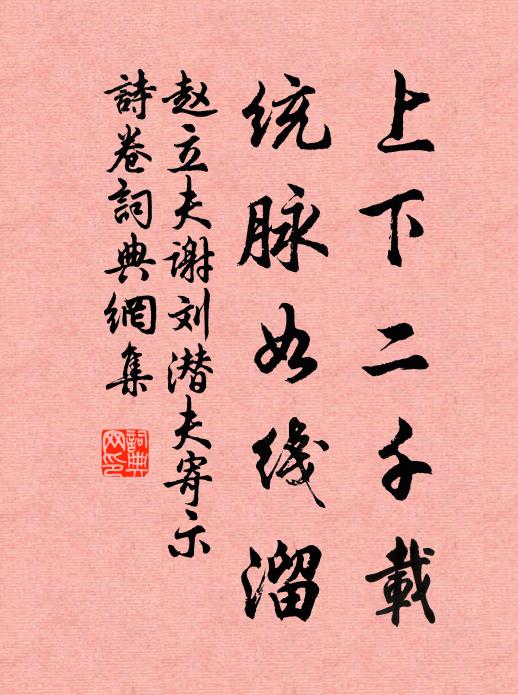 上下二千載
统脉如线溜
赵立夫谢刘潜夫寄示
詩卷詞典網集
詞典
网印